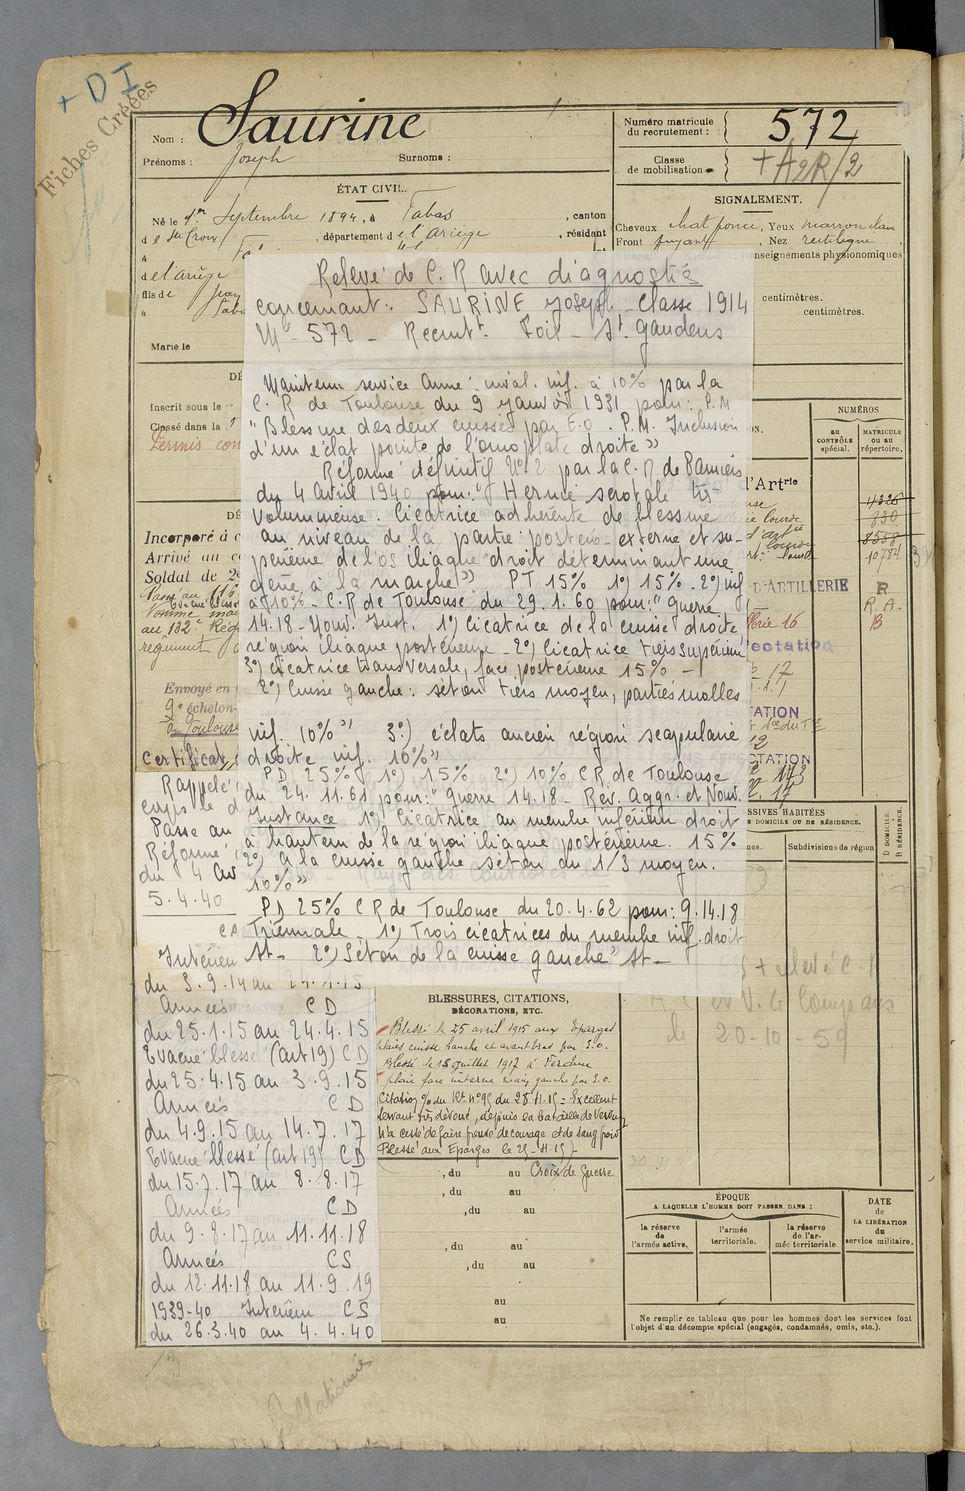 + D I
Fiches Créées
Nom : Saurine
Prénoms : Joseph Surnoms :
Numéro matricule du recrutement : 572
Classe de mobilisation + A2R/2
ÉTAT CIVIL.
Né le 1er Septembre 1894, à Fabas, canton
de Ste Croix, département de l'ariège, résidant
à Fa
de l'ariège
fils de Jean
à Faba
Marié le
SIGNALEMENT.
Cheveux chat foncé, Yeux marron clair
Front fuyant, Nez rectiligne,
nseignements physionomiques
centimètres.
centimètres.
Relevé de C. R avec diagnostic
concernant : SAURINE Joseph - Classe 1914
Mle 572 - Recrutt Foix - St Gaudens
Maintenu service armé inval. inf. à 10% par la
C. R de Toulouse du 9 Janvier 1931 pour: P.M
" Blessure des deux cuisses par E.O. P.M. Inclusion
d'un éclat pointe de l'omoplate droite »
Réformé définitif N° 2 par la C. R de Pamiers
du 4 Avril 1940 pour: " Hernie scrotale très
volumineuse. Cicatrice adhérente de blessure
au niveau de la partie postéro-externe et su-
périeure de l'os iliaque droit déterminant une
gêne à la marche » PT 15% 1°) 15% - 2°) inf
à 10% - C.R de Toulouse du 29.1.60 pour: " Guerre
14.18 - Nouv. Inst. 1°) Cicatrice de la cuisse droite,
région iliaque postérieure - 2°) Cicatrice tiers supérieur
3°) cicatrice transversale, face postérieure 15% -
2°) Cuisse gauche : séton tiers moyen, parties molles
inf. 10% " 3°) éclats ancien région scapulaire
droite inf. 10% "
PD 25% 1°) 15% 2°) 10% CR de Toulouse
du 24.11.61 pour: " Guerre 14.18 - Rév. Aggr. et Nouv.
Instance 1°) Cicatrice au membre inférieur droit
à hauteur de la région iliaque postérieure. 15%
2°) à la cuisse gauche séton du 1/3 moyen.
10% "
PD 25% CR de Toulouse du 20.4.62 pour: G.14.18
Triennale - 1°) Trois cicatrices du membre inf. droit
St - 2°) Séton de la cuisse gauche " St -
DÉ
Inscrit sous le
Classé dans la 1
Permis con
DÉ
Incorporé à c
Arrivé au c
Soldat de 2e
Passé au 116
Évacué blessé
Nommé mai
au 132e Rég
régiment
Envoyé en
9e échelon
à Toulouse
Certificat
Rappelé
corps le d
Passé au
Réformé
du 4 Av
5.4.40
CA
Intérieur
du 3.9.14 au 24.1.15
Armées CD
du 25.1.15 au 24.4.15
Evacué blessé (art 19) CD
du 25.4.15 au 3.9.15
Armées CD
du 4.9.15 au 14.7.17
Evacué blessé (art 19) CD
du 15.7.17 au 8.8.17
Armées CD
du 9.8.17 au 11.11.18
Armées CS
du 12.11.18 au 11.9.19
1939-40 Intérieur CS
du 26.3.40 au 4.4.40
NUMÉROS
au CONTRÔLE spécial. MATRICULE ou au répertoire.
d'Artrie
4326
830
8558
10784
D'ARTILLERIE R
R.A.
B
SSIVES HABITÉES
DE DOMICILE OU DE RÉSIDENCE.
Subdivisions de région
D DOMICILE.
R RÉSIDENCE.
+ relevé C.R
le 20-10-59
BLESSURES, CITATIONS,
DÉCORATIONS, ETC.
Blessé le 25 avril 1915 aux Eparges
plaies cuisse gauche et avant bras par E.O.
Blessé le 15 juillet 1917 à Verdun
plaie face interne main gauche par E.O.
Excellent
servant très dévoué, depuis la bataille de Verdun
n'a cessé de faire preuve de courage et de sang froid
Blessé aux Eparges
, du au Croix de Guerre
, du au
, du au
, du au
, du au
au
au
ÉPOQUE
A LAQUELLE L'HOMME DOIT PASSER DANS :
la réserve de l'armée active. l'armée territoriale. la réserve de l'armée territoriale.
DATE de LA LIBÉRATION du service militaire.
Ne remplir ce tableau que pour les hommes dont les services font
l'objet d'un décompte spécial (engagés, condamnés, omis, etc.).